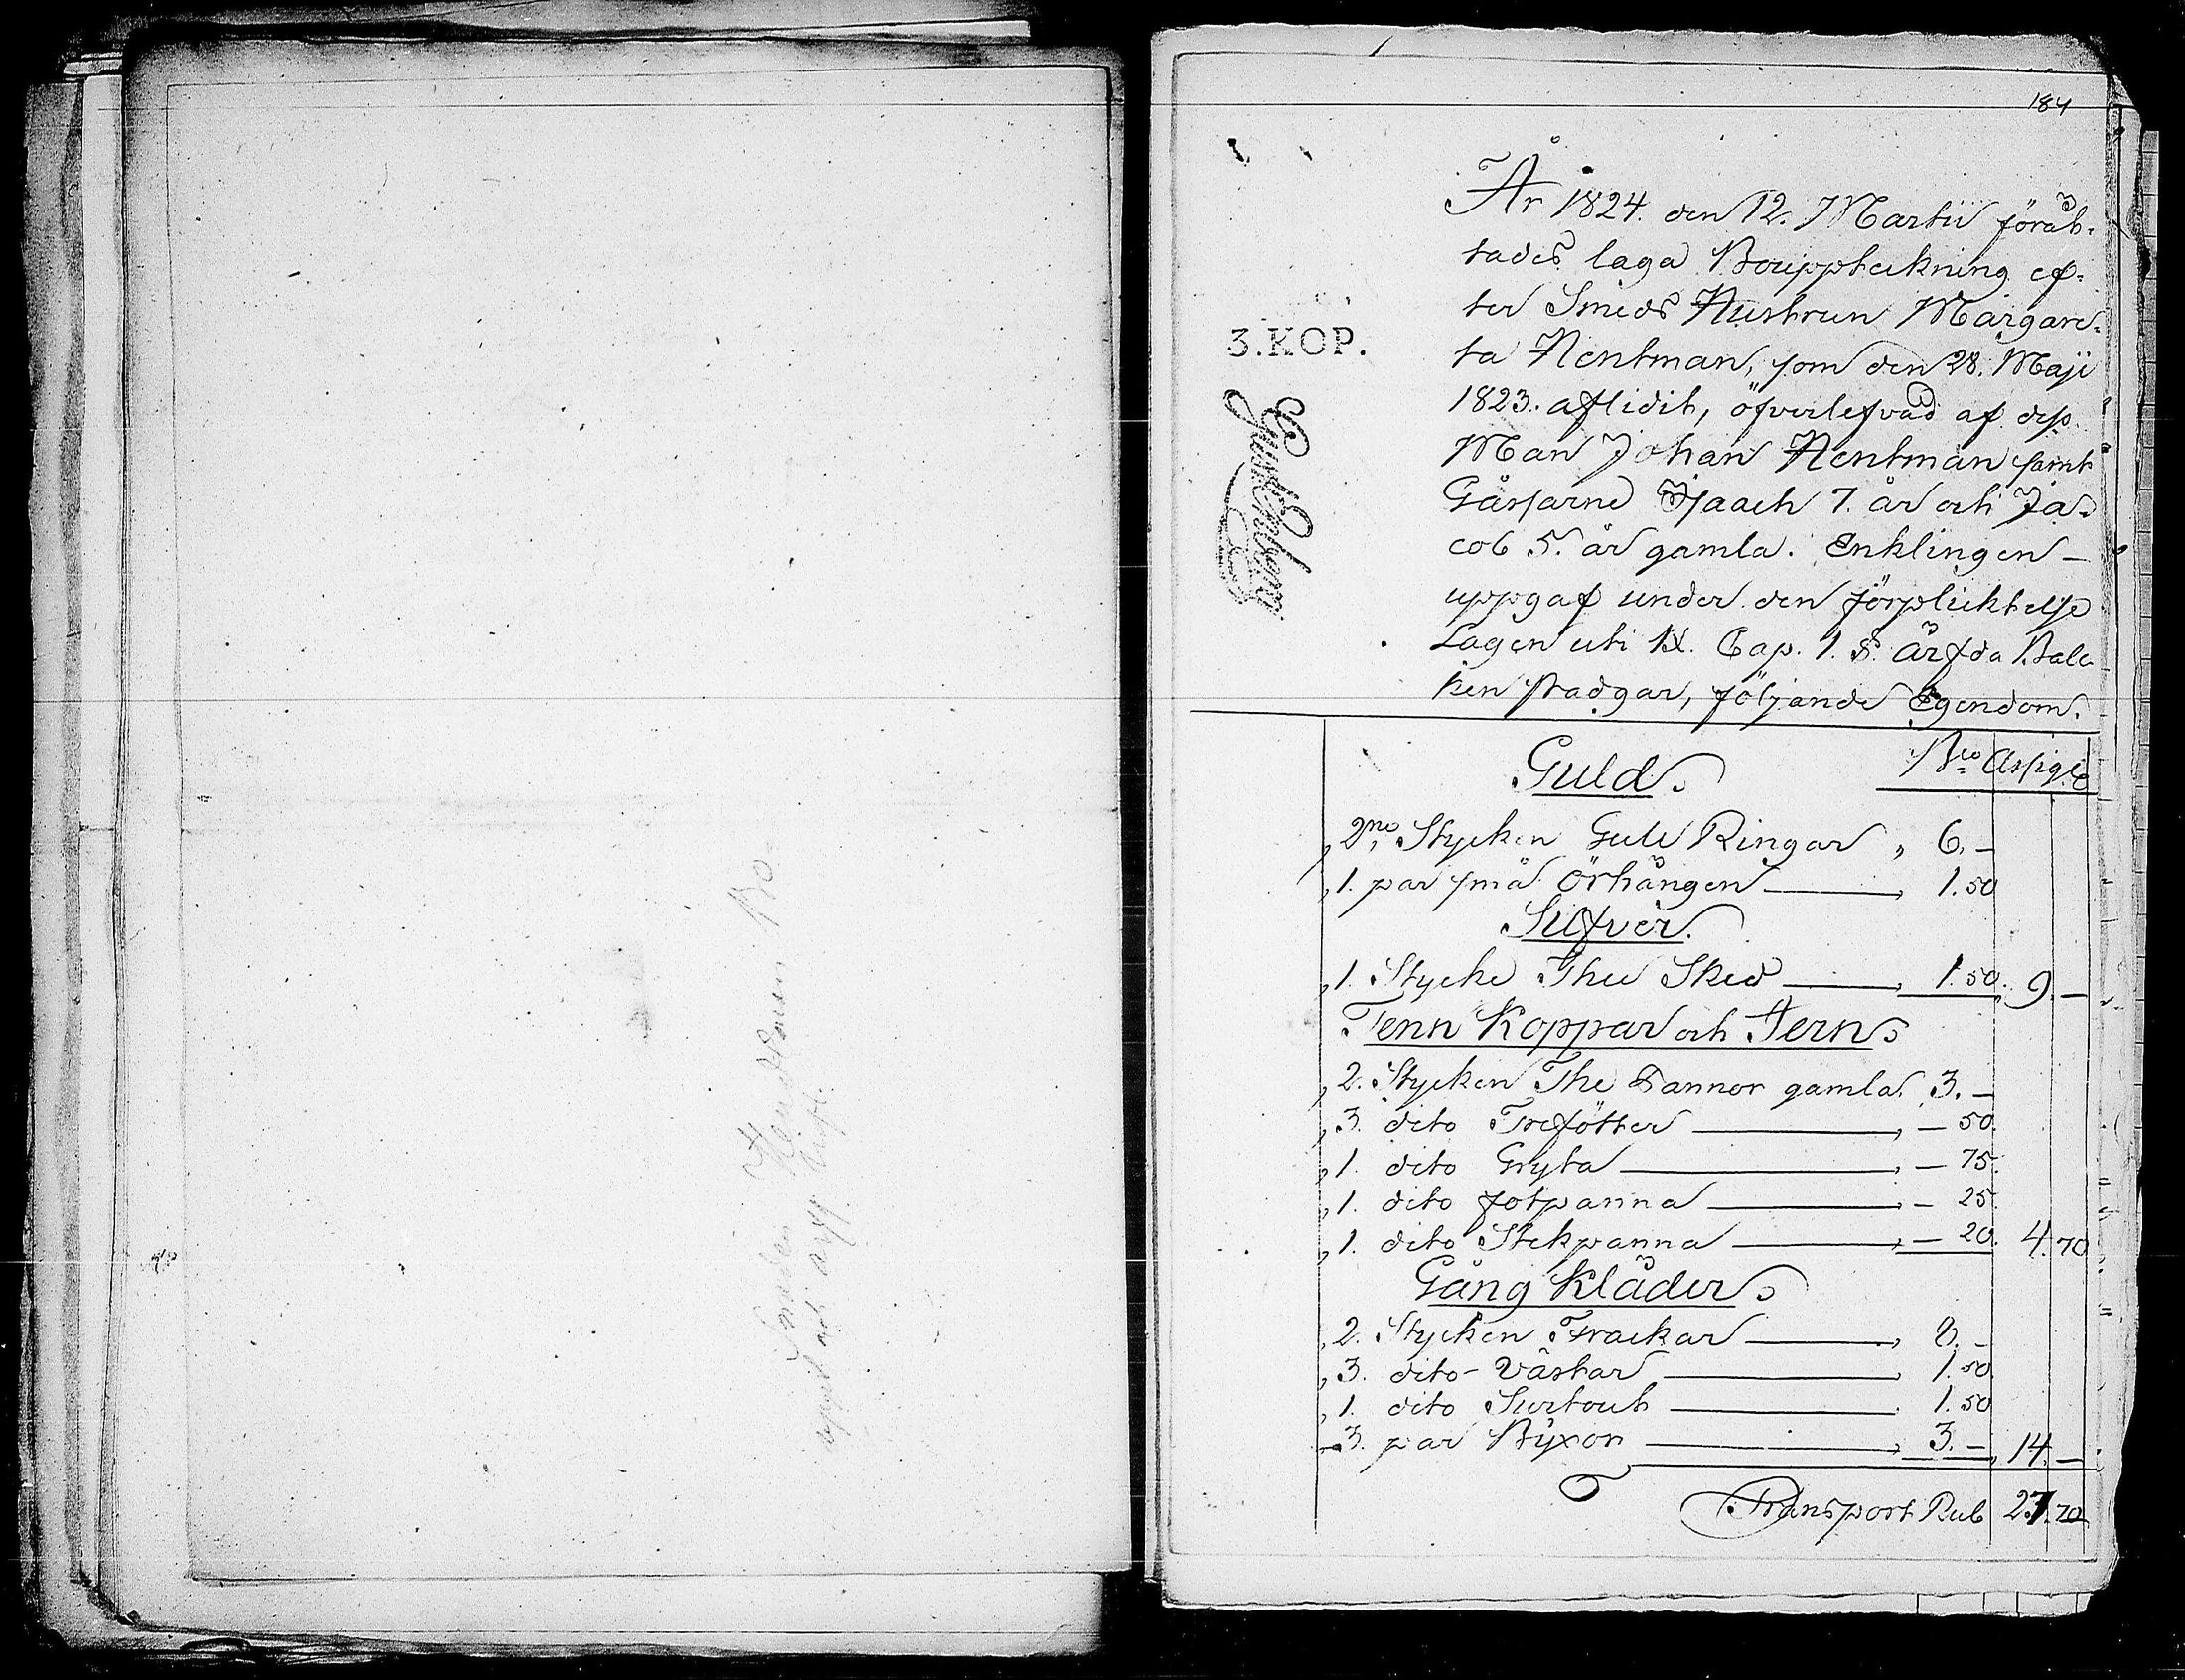 Smeden Hentman Bo
184
År 1824. den 12. Martii förät-
tades laga Bouppteckning ef-
ter Smeds Hustrun Margare-
3.KOP.
ta Hentman, som den 28. Maji
1823. aflidit, öfverlefvad af dess
Man Johan Hentman samt
Gåssarne Isaach 7. år och Ja-
cob 5. år gamla. Enklingen
uppgaf under den förpliktelse
Lagen uti IX. Cap. 1. §. Ärfda Bal-
ken stadgar, följande Egendom.
Bco Assigle
Guld.
2ne Stycken Guld Ringar, 6. –
1. par små Örhängen, 1.50
Silfver.
1. Stycke The Sked, 1.50. 9. –
Tenn Koppar och Jern
2. Stycken The Kannor gamla. 3. –
3. dito Trefötter, – 50.
1. dito Gryta, – 75.
1. dito fotpanna, – 25.
1. dito Stekpanna, – 20. 4. 70
Gång Kläder
2. Stycken Frackar, 8. –
3. dito Västar, 1.50
1. dito Surtout, 1.50
3. par Byxor, 3. – 14. –
Transport Rub 27. 70